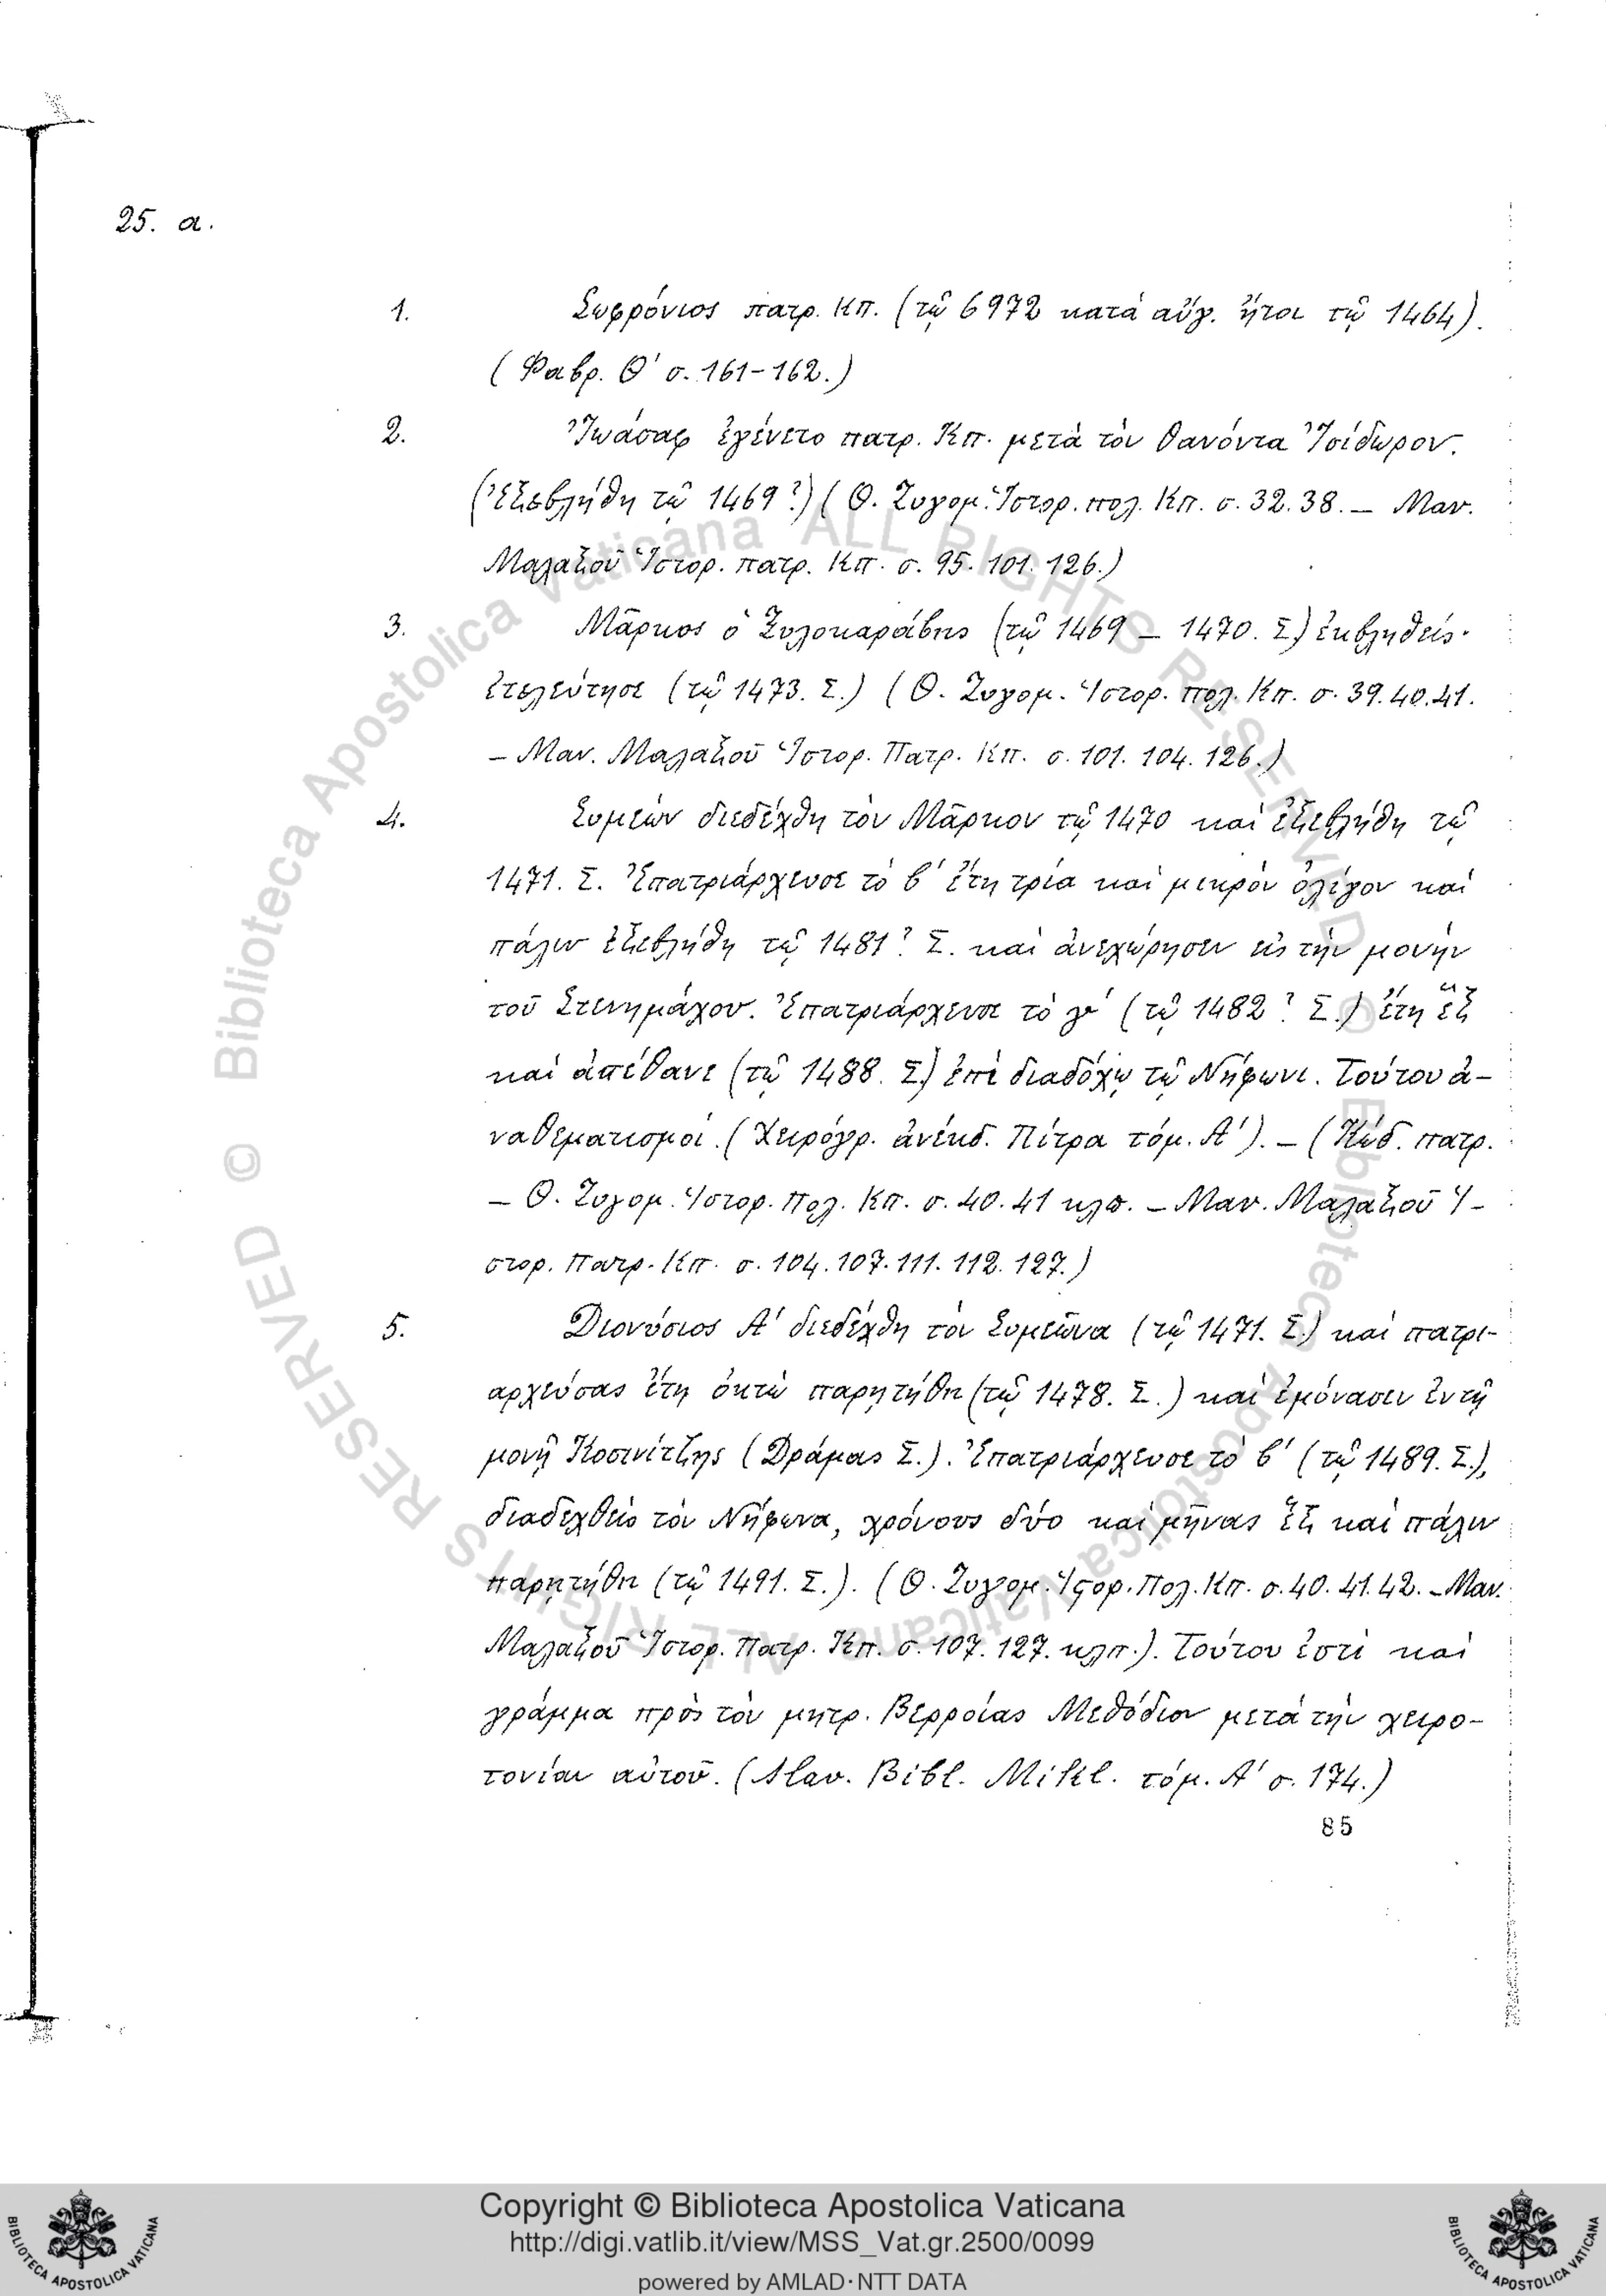 25. α.
1. Σωφρόνιος πατρ. Κπ. (τῷ 6972 κατὰ αὔγ. ἤτοι τῷ 1464).
(Φαβρ. Θ' σ. 161-162.)
2. Ἰωάσαφ ἐγένετο πατρ. Κπ. μετὰ τὸν θανόντα Ἰσίδωρον.
(Ἐξεβλήθη τῷ 1469?) (Θ. Ζυγομ. Ἱστορ. πολ. Κπ. σ. 32. 38. — Μαν.
Μαλαξοῦ Ἱστορ. πατρ. Κπ. σ. 95. 101. 126.)
3. Μᾶρκος ὁ Ξυλοκαράβης (τῷ 1469 — 1470. Σ.) ἐκβληθείς.
ἐτελεύτησε (τῷ 1473. Σ.) (Θ. Ζυγομ. Ἱστορ. πολ. Κπ. σ. 39. 40. 41.
— Μαν. Μαλαξοῦ Ἱστορ. Πατρ. Κπ. σ. 101. 104. 126.)
4. Συμεὼν διεδέχθη τὸν Μᾶρκον τῷ 1470 καὶ ἐξεβλήθη τῷ
1471. Σ. Ἐπατριάρχευσε τὸ β' ἔτη τρία καὶ μικρὸν ὀλίγον καὶ
πάλιν ἐξεβλήθη τῷ 1481? Σ. καὶ ἀνεχώρησεν εἰς τὴν μονὴν
τοῦ Στενημάχου. Ἐπατριάρχευσε τὸ γ' (τῷ 1482? Σ.) ἔτη ἓξ
καὶ ἀπέθανε (τῷ 1488. Σ.) ἐπὶ διαδόχῳ τῷ Νήφωνι. Τούτου ἀ-
ναθεματισμοί. (Χειρόγρ. ἀνέκδ. Πίτρα τόμ. Α'). — (Κώδ. πατρ.
— Θ. Ζυγομ. Ἱστορ. Πολ. Κπ. σ. 40. 41 κλπ. — Μαν. Μαλαξοῦ Ἱ-
στορ. Πατρ. Κπ. σ. 104. 107. 111. 112. 127.)
5. Διονύσιος Α' διεδέχθη τὸν Συμεῶνα (τῷ 1471. Σ.) καὶ πατρι-
αρχεύσας ἔτη ὀκτὼ παρῃτήθη (τῷ 1478. Σ.) καὶ ἐμόνασεν ἐν τῇ
μονῇ Κοσινίτζης (Δράμας Σ.). Ἐπατριάρχευσε τὸ β' (τῷ 1489. Σ.),
διαδεχθεὶς τὸν Νήφωνα, χρόνους δύο καὶ μῆνας ἓξ καὶ πάλιν
παρῃτήθη (τῷ 1491. Σ.). (Θ. Ζυγομ. Ἱστορ. Πολ. Κπ. σ. 40. 41. 42. — Μαν.
Μαλαξοῦ Ἱστορ. Πατρ. Κπ. σ. 107. 127. κλπ.). Τούτου ἐστὶ καὶ
γράμμα πρὸς τὸν μητρ. Βερροίας Μεθόδιον μετὰ τὴν χειρο-
τονίαν αὐτοῦ. (Slav. Bibl. Mikl. τόμ. Α' σ. 174.)
85
© Biblioteca Apostolica Vaticana ALL RIGHTS RESERVED
© Biblioteca Apostolica Vaticana ALL RIGHTS RESERVED
Copyright © Biblioteca Apostolica Vaticana
http://digi.vatlib.it/view/MSS_Vat.gr.2500/0099
powered by AMLAD·NTT DATA
BIBLIOTECA APOSTOLICA VATICANA
BIBLIOTECA APOSTOLICA VATICANA